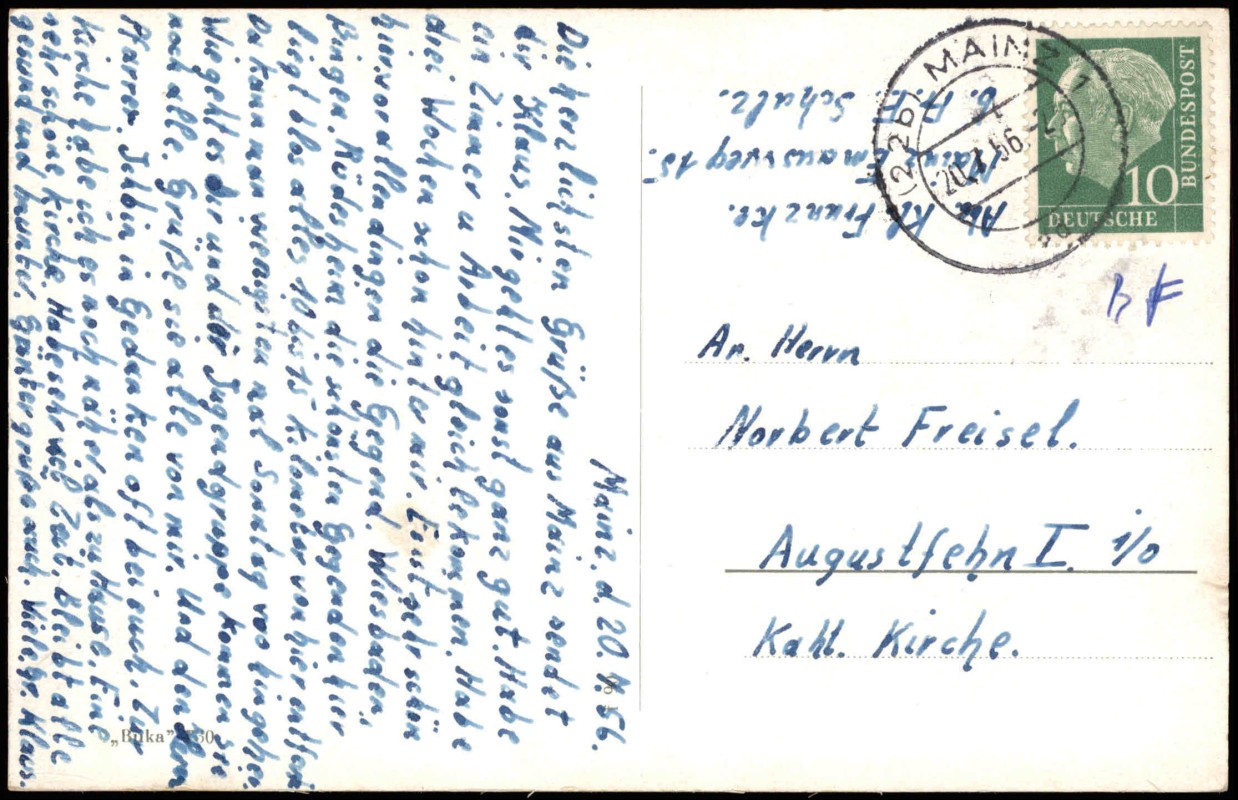 Mainz. d. 20. 7. 56.
Die herzlichsten Grüße aus Mainz sendet
dir Klaus. Mir gehtles sonst ganz gut. Habe
ein Zimer u Arbeit gleich bekommen. Habe
drei Wochen schon hinter mir. Es ist sehr schön
hier vor allen dingen die Gegend. Wiesbaden,
Bingen. Rüdesheim die schönsten Gegenden hir
ligt blos alles 10 bis 15 kilometer von hier entfert
Da kann man wenigsten mal Sonntag wo hingehen.
Wie geht es dir und der Jugendgruppe kommen sie
noch alle. Grüße sie alle von mir. Und an den
Pfarrer. Ich bin in Gedanken oft bei euch. Zur
Kirche habe ich es noch näher als zu Hause. Eine
sehr schöne Kirche. Habe sehr viel Zeit. Bleibt alle
gesund und munter. Grüße auch. Viele. gr. Klaus.
„Buka" 730
Abs. Kl Franzke.
Mainz Emausweg 15.
b. A. E. Schulz.
(22b) MAINZ 1
20.7.56.
BUNDESPOST
10
DEUTSCHE
An. Herrn
Norbert Freisel.
Augustfehn I. i/o
Kath. Kirche.